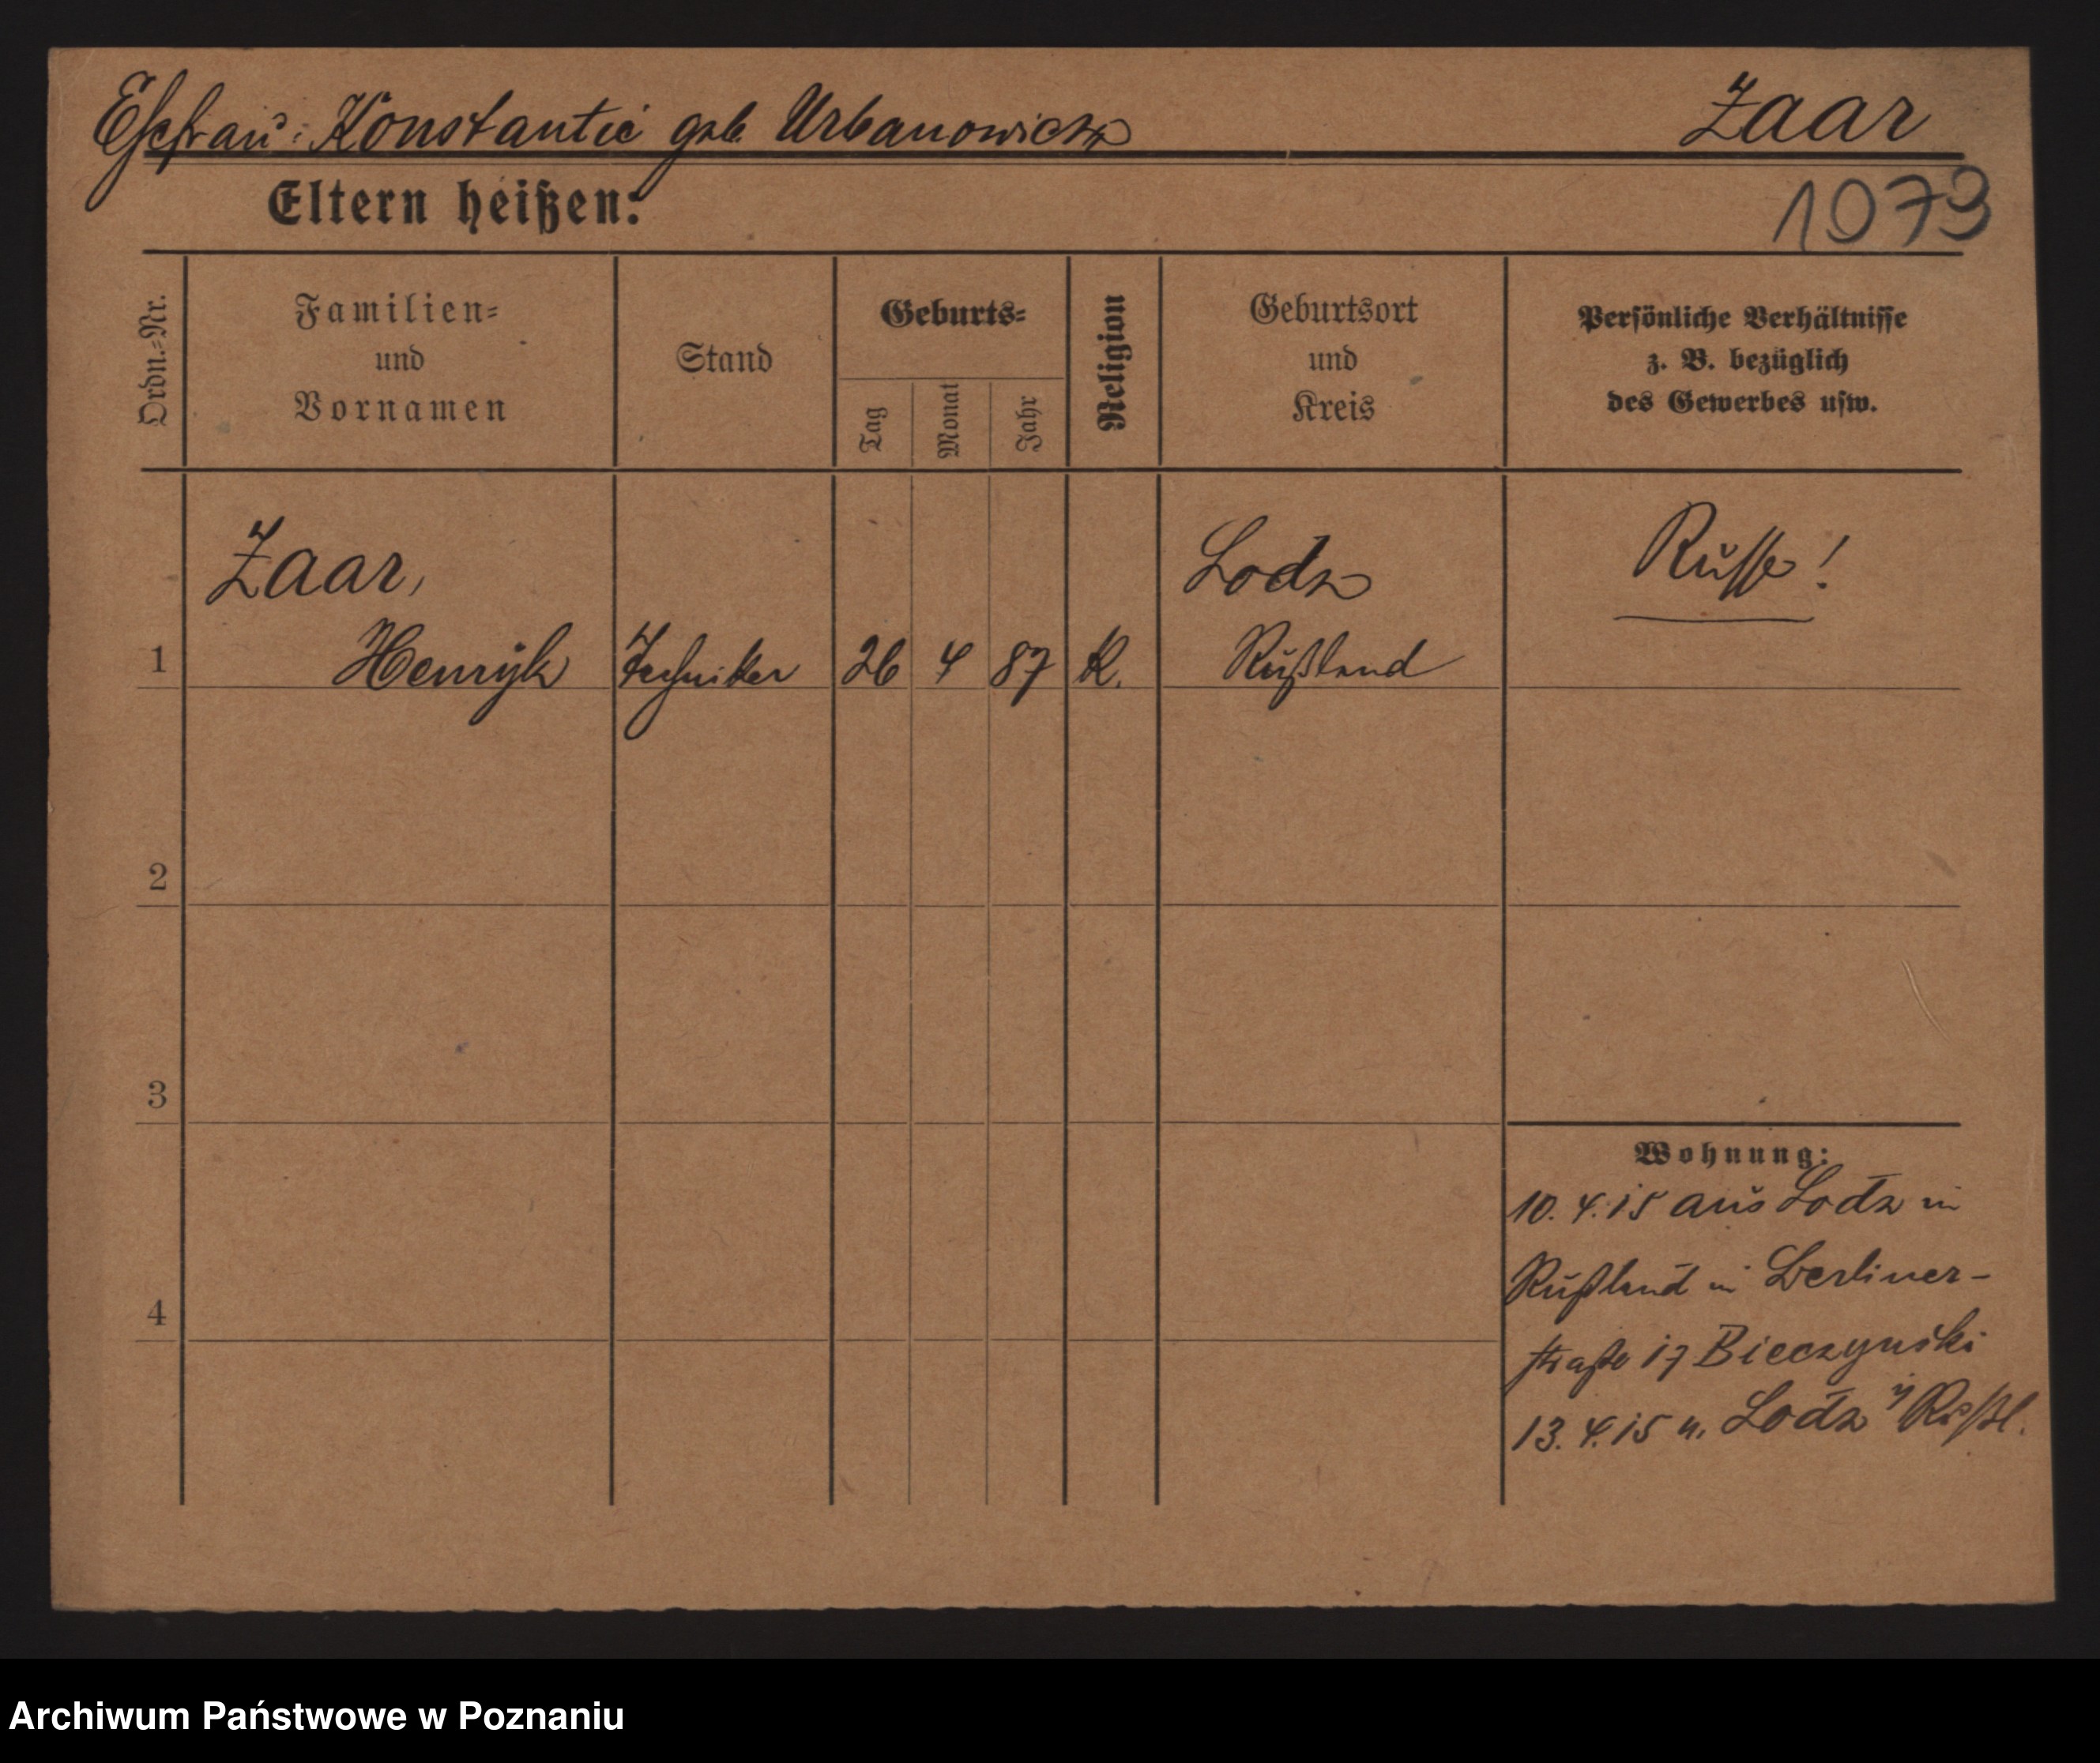 Ehefrau: Konstantie geb. Urbanowicz
Zaar
Eltern heißen:
1079
Ordn.-Nr.
Familien-
und
Vornamen
Stand
Geburts-
Tag
Monat
Jahr
Religion
Geburtsort
und
Kreis
Persönliche Verhältnisse
z. B. bezüglich
des Gewerbes usw.
Zaar,
Lodz
Russe!
1
Henryk
Techniker
26
4
87
K.
Rußland
2
3
4
Wohnung:
10.4.15 aus Lodz in
Rußland in Berliner-
straße 17 Bieczynski
13.4.15 n. Lodz i/ Rußl.
Archiwum Państwowe w Poznaniu